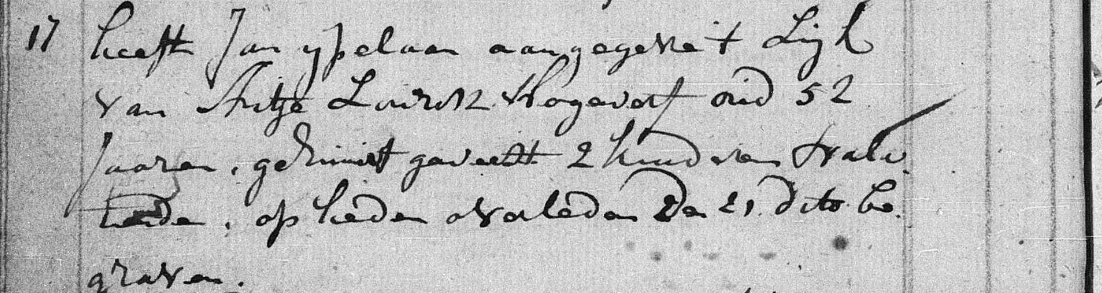 17 heeft Jan ypelaar aangegeve t Lijk
van Antje Louwrisz Hogewerf oud 52
Jaaren, getrouwt geweest 2 kinderen
op heden overleden De 21 dito be
graven.